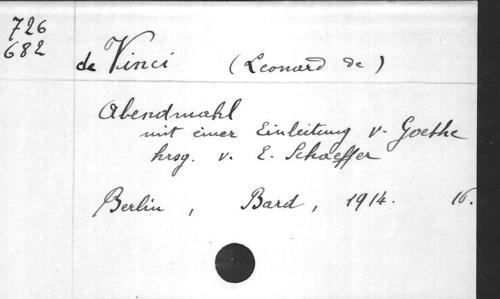 726
682
da Vinci (Leonard de)
Abendmahl
mit einer Einleitung v. Goethe
hrsg. v. E. Schaeffer
Berlin, Bard, 1914. 16.